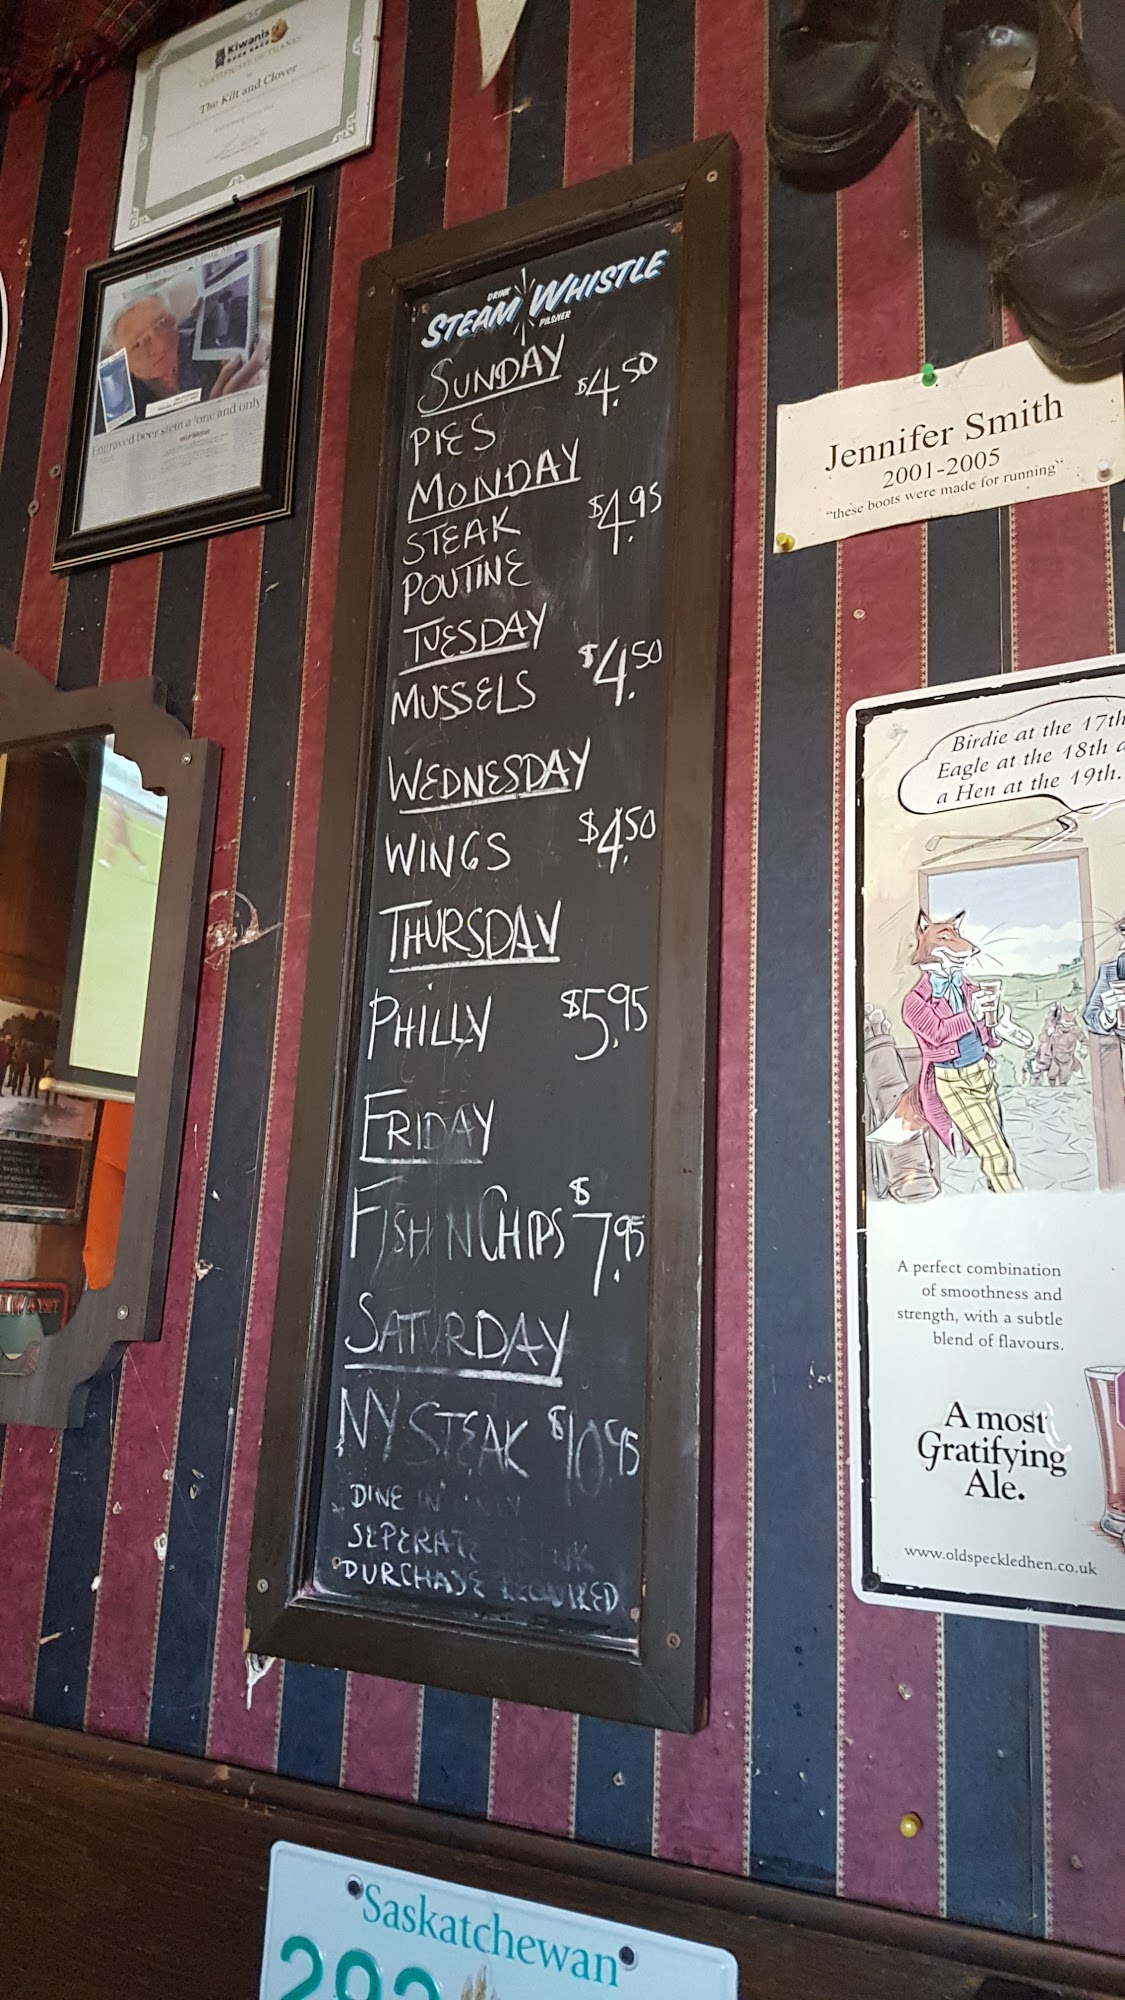 Kiwanis
DUCK RACE
CERTIFICATE OF THANKS
The Kilt and Clover
Engraved beer stein a 'one and only'
DRINK
STEAM WHISTLE
PILSNER
SUNDAY
PIES $4.50
MONDAY
STEAK $4.95
POUTINE
TUESDAY
MUSSELS $4.50
WEDNESDAY
WINGS $4.50
THURSDAY
PHILLY $5.95
FRIDAY
FISH N CHIPS $7.95
SATURDAY
NY STEAK $10.95
DINE IN ONLY
SEPERATE DRINK
PURCHASE REQUIRED
Jennifer Smith
2001-2005
"these boots were made for running"
Birdie at the 17th
Eagle at the 18th
a Hen at the 19th.
A perfect combination
of smoothness and
strength, with a subtle
blend of flavours.
A most
Gratifying
Ale.
www.oldspeckledhen.co.uk
Saskatchewan